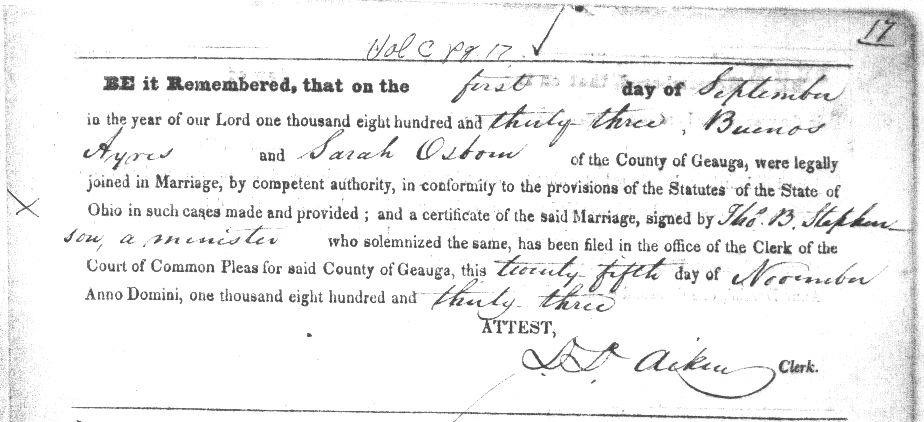 17
Vol C pg 17
BE it Remembered, that on the first day of September
in the year of our Lord one thousand eight hundred and thirty three, Buenos
Ayres and Sarah Osborn of the County of Geauga, were legally
joined in Marriage, by competent authority, in conformity to the provisions of the Statutes of the State of
Ohio in such cases made and provided; and a certificate of the said Marriage, signed by Tho. B. Stephen-
son, a minister who solemnized the same, has been filed in the office of the Clerk of the
Court of Common Pleas for said County of Geauga, this twenty fifth day of November
Anno Domini, one thousand eight hundred and thirty three
ATTEST,
D. D. Aiken Clerk.